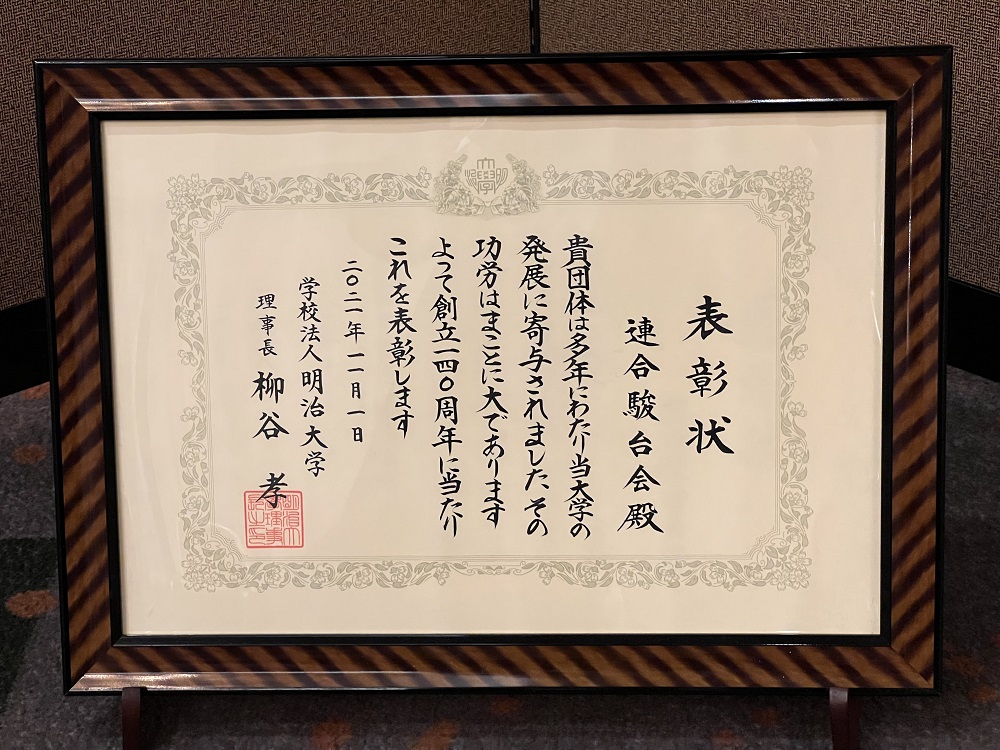 表彰状
連合駿台会殿
貴団体は多年にわたり当大学の
発展に寄与されました、その
功労はまことに大であります
よって創立一四〇周年に当たり
これを表彰します
二〇二一年一一月一日
学校法人明治大学
理事長 柳谷 孝